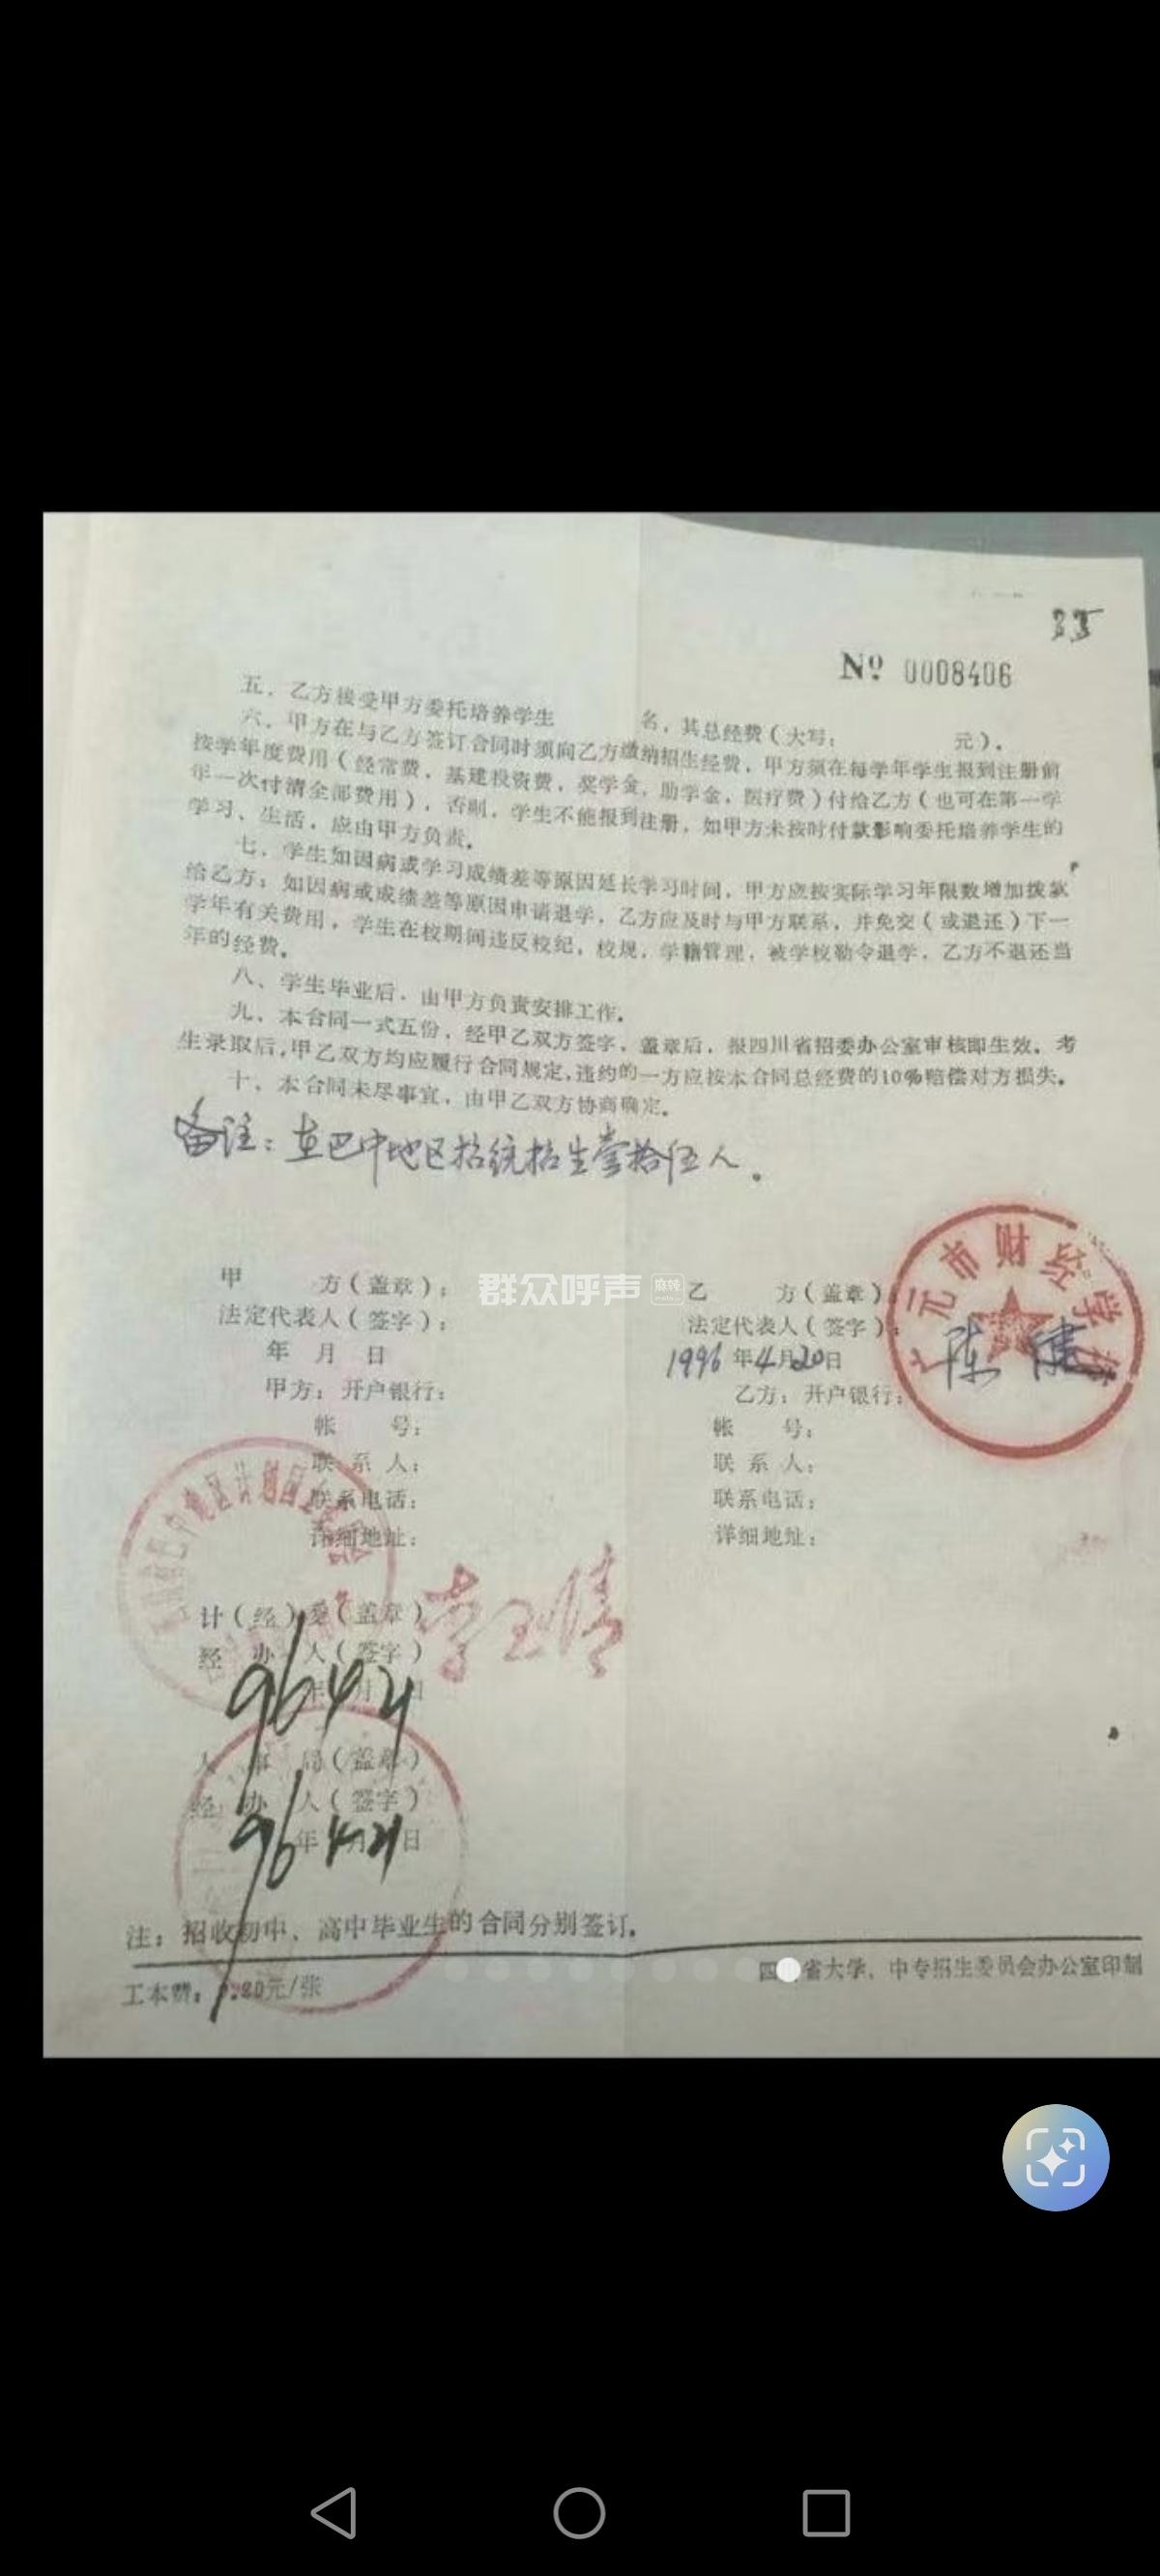 35
Nº 0008406
五、乙方接受甲方委托培养学生　　名，其总经费（大写：　　元）。
六、甲方在与乙方签订合同时须向乙方缴纳招生经费，甲方须在每学年学生报到注册前
按学年度费用（经常费，基建投资费，奖学金，助学金，医疗费）付给乙方（也可在第一学
年一次付清全部费用），否则，学生不能报到注册，如甲方未按时付款影响委托培养学生的
学习、生活，应由甲方负责。
七、学生如因病或学习成绩差等原因延长学习时间，甲方应按实际学习年限数增加拨款
给乙方；如因病或成绩差等原因申请退学，乙方应及时与甲方联系，并免交（或退还）下一
学年有关费用，学生在校期间违反校纪，校规，学籍管理，被学校勒令退学，乙方不退还当
年的经费。
八、学生毕业后，由甲方负责安排工作。
九、本合同一式五份，经甲乙双方签字、盖章后，报四川省招委办公室审核即生效，考
生录取后，甲乙双方均应履行合同规定，违约的一方应按本合同总经费的10%赔偿对方损失。
十、本合同未尽事宜，由甲乙双方协商确定。
备注：在巴中地区招统招生壹拾伍人。
甲　　方（盖章）：
法定代表人（签字）：
年　月　日
甲方：开户银行：
帐　　号：
联 系 人：
联系电话：
详细地址：
群众呼声
麻辣
乙　　方（盖章）：
法定代表人（签字）：
1996年4月20日
乙方：开户银行：
帐　　号：
联 系 人：
联系电话：
详细地址：
元市财经学校
陈健
计（经）委（盖章）
经　办　人（签字）
96 4 21
人　事　局（盖章）
经　办　人（签字）
96年4月21日
注：招收初中、高中毕业生的合同分别签订。
工本费：0.80元/张
四川省大学、中专招生委员会办公室印制